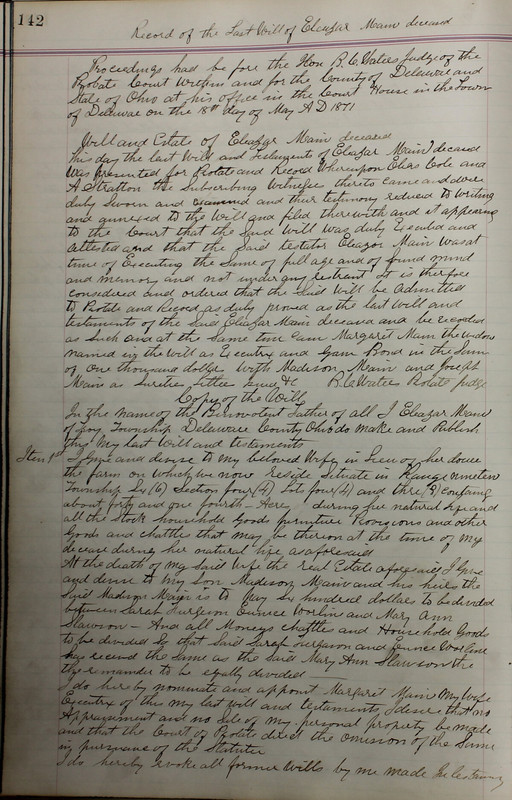 142
Record of the Last Will of Eleazar Main deceased
Proceedings had before the Hon B. C. Waters Judge of the
Probate Court within and for the County of Delaware and
State of Ohio at his office in the Court House in the Town
of Delaware on the 18th day of May A D 1871
Will and Estate of Eleazar Main deceased
This day the last Will and Testaments of Eleazar Main decased
Was presented for Probate and Record Whereupon Elias Cole and
A Stratton the Subscribing Witnesses thereto came and were
duly Sworn and examined and their testimony reduced to Writing
and annexed to the Will and filed therewith and it appearing
to the Court that the Said Will was duly Executed and
Attested and that the Said testator Eleazar Main was at
time of Executing the Same of full age and of sound mind
and memory and not under any restraint It is therefore
considered and ordered that the Said Will be Admitted
to Probate and Record as duly proved as the last Will and
testaments of the Said Eleazar Main deceased and be recorded
as Such And at the Same time Came Margaret Main the widow
named in the Will as Executrix and Gave Bond in the Sum
of One thousand dollars With Madison Main and Joseph
Main as Sureties Letters &c B. C. Waters Probate Judge
Copy of the Will
In the name of the Benevolent Father of all I Eleazar Main
of Troy Township Delaware County Ohio do make and Publish
this My last Will and testaments
Item 1st I give and devise to my beloved Wife in lieu of her dower
the farm on which we now reside Situate in Range nineteen
Township Six (6) Section four (4) Lots four (4) and three (3) Containing
about forty and one fourth Acres during her natural life and
all the Stock household Goods furniture Provisions and other
Goods and Chattles that may be thereon at the time of my
decease during her natural life as aforesaid
At the death of my Said Wife the real Estate aforesaid I Give
and devise to my Son Madison Main and his heirs the
Said Madison Main is to Pay Six hundred dollars to be divided
between Sarah Furgeson Eunice Worlin and Mary Ann
Slawson – And all Moneys Chattles and Household Goods
to be divided So that Said Sarah Furgason and Eunice Worline
has recived the Same as the Said Mary Ann Slawson the
the remainder to be equally divided
I do hereby nominate and appoint Margaret Main My Wife
Executrix of this my last will and testaments I desire that no
Appraisment and no Sale of my personal property be made
and that the Court of Probate direct the omission of the Same
in pursuance of the Statutes
I do hereby revoke all former Wills by me made In testimony